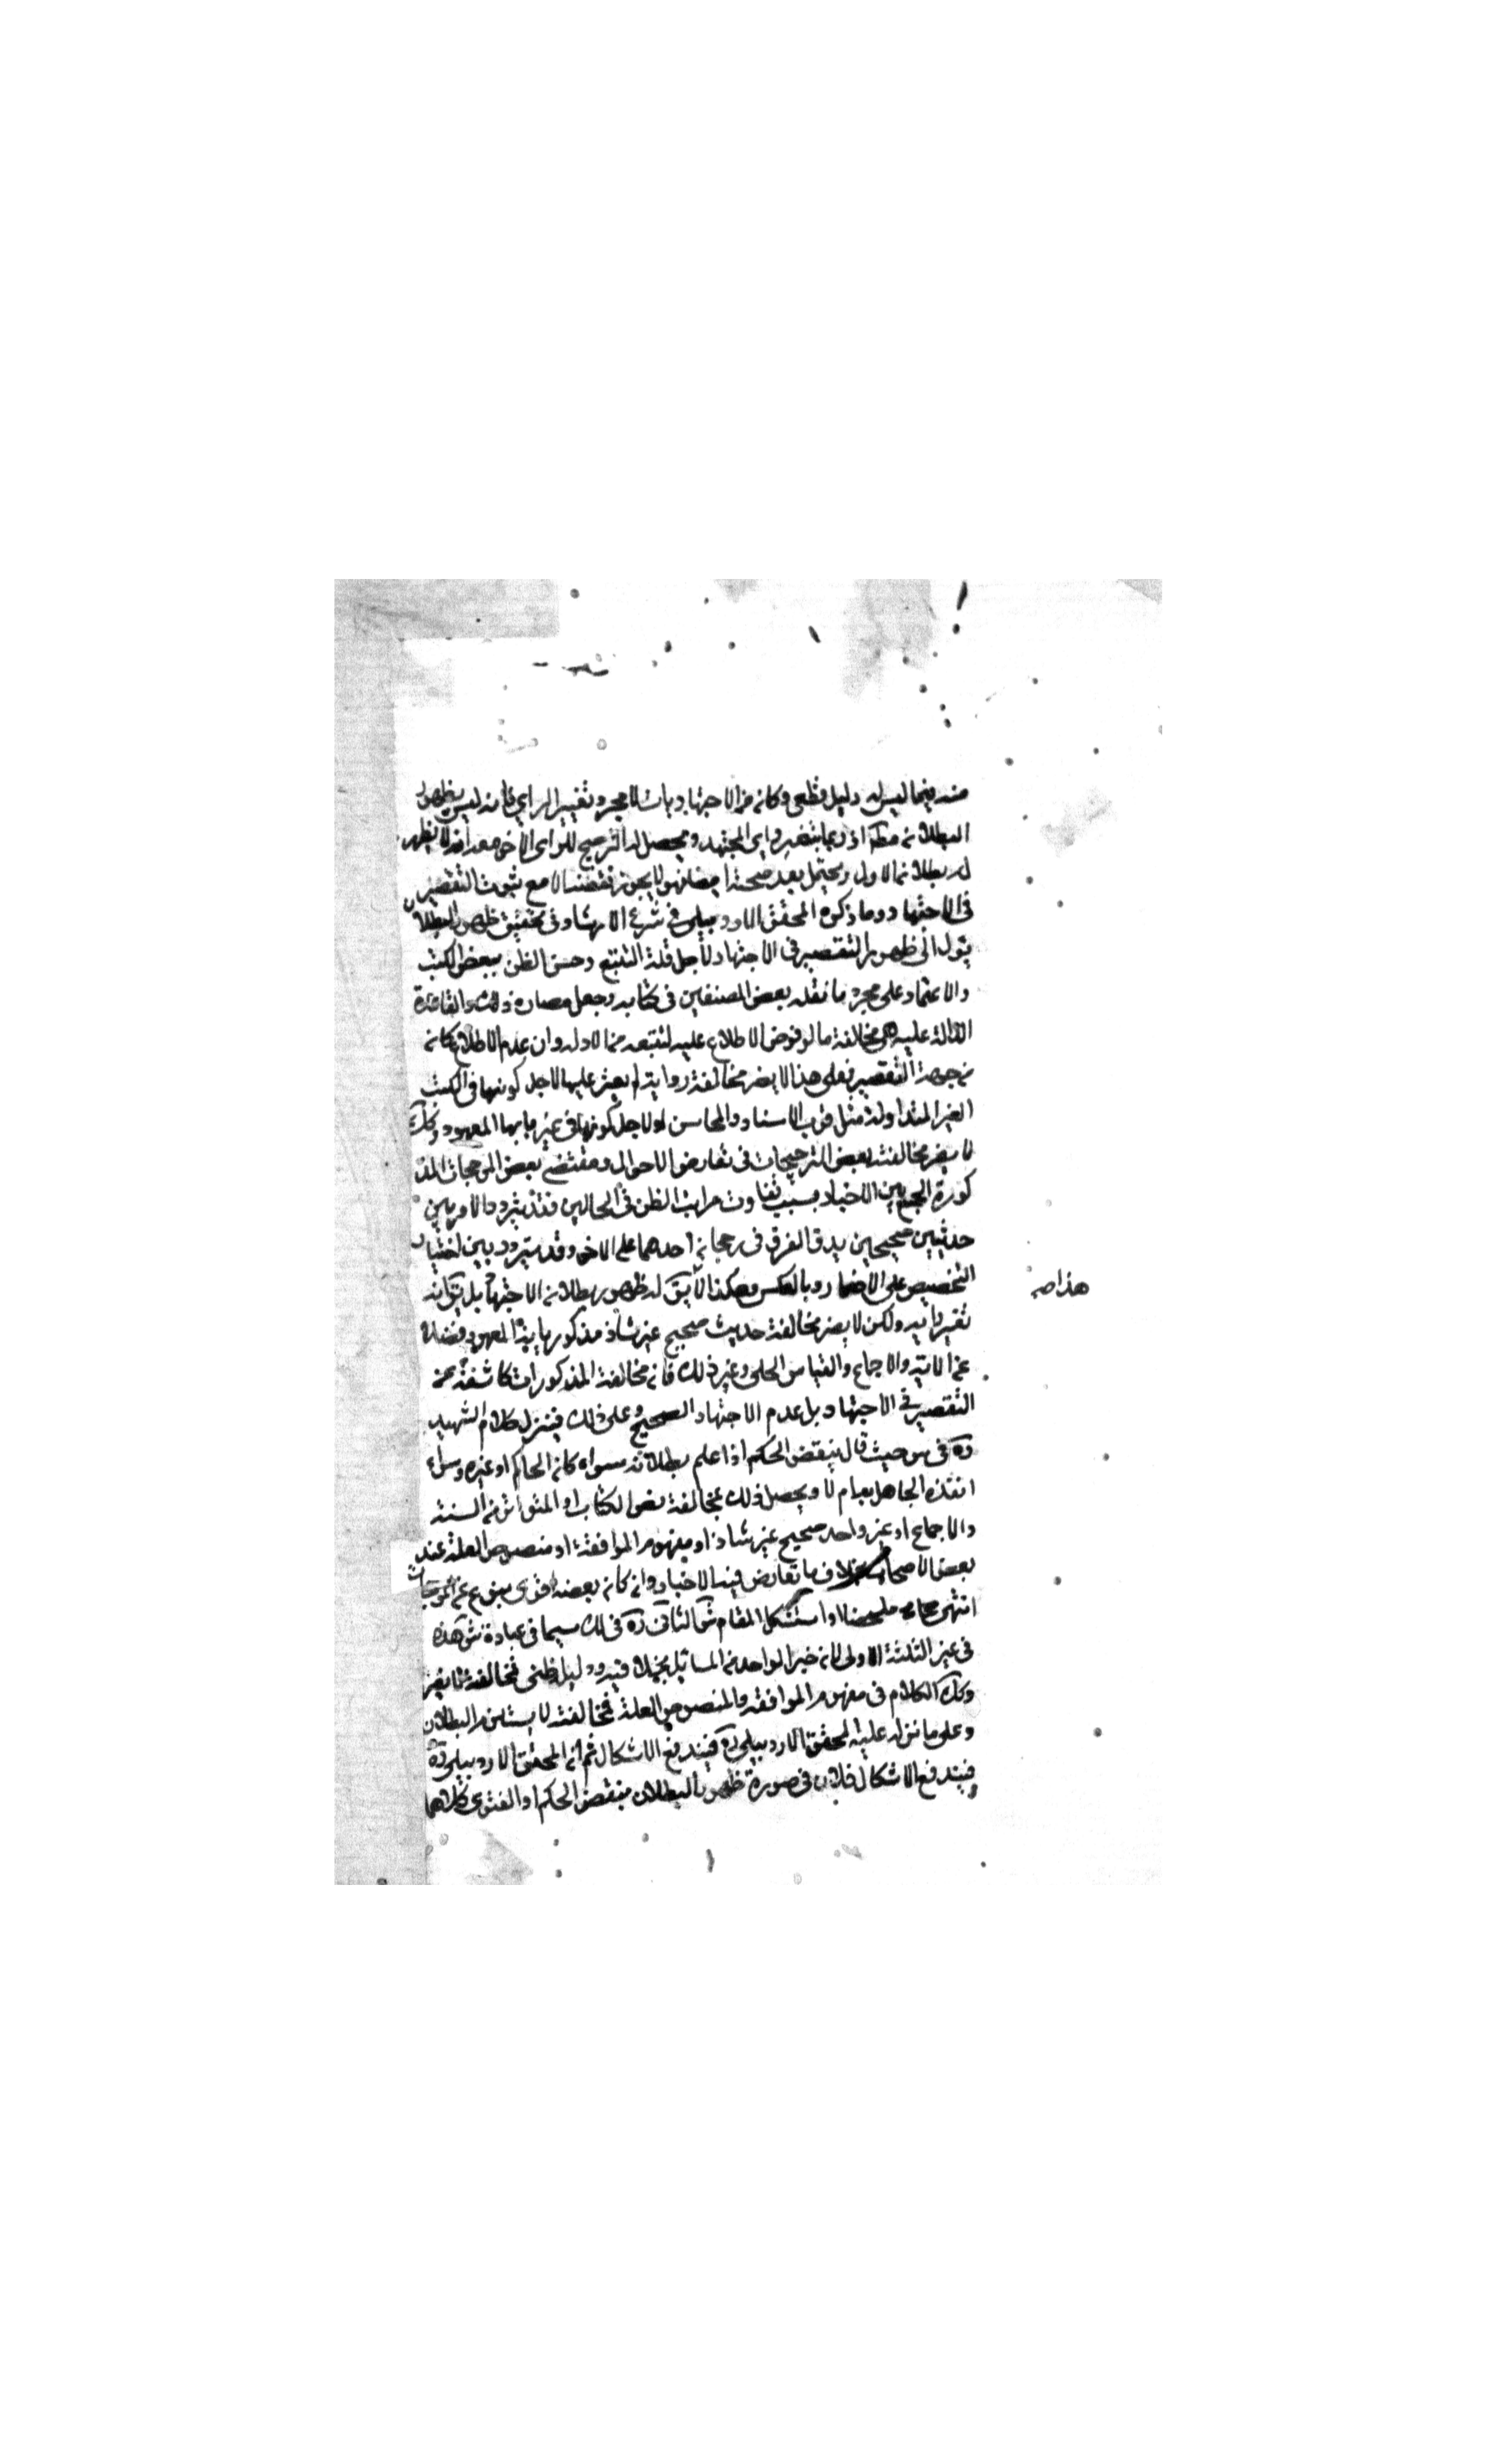 منه فيما ليس له دليل قطعي وكان من الاجتهاديات لا مجرد تغيير الراي فانه ليس بظهور
البطلان مطلقا اذ ربما يتغير راي المجتهد ويحصل له الترجيح للراي الاخر مع انه لا يظهر
له بطلان الاول ويحتمل بعد صحته ايضا فهو لا يجوز نقضه الا مع ثبوت التقصير
في الاجتهاد وما ذكره المحقق الاردبيلي في شرح الارشاد في تحقيق ظهور البطلان
يؤل الى ظهور التقصير في الاجتهاد لاجل قلة التتبع وحسن الظن ببعض الكتب
والاعتماد على مجرد ما نقله بعض المصنفين في كتابه وجعل معيار ذلك والقاعدة
الدالة عليه هي مخالفة ما لو فرض الاطلاع عليه لتتبعه من الادلة وان عدم الاطلاع كان
من جهة التقصير فعلى هذا لا يضر مخالفة رواية لم يعثر عليها لاجل كونها في الكتب
الغير المتداولة مثل قرب الاسناد والمحاسن او لاجل كونها في غير بابها المعهود وكك
لا يضر مخالفة بعض الترجيحات في تعارض الاحوال ومقتضى بعض المرجحات المذ
كورة الجمع بين الاخبار بسبب تفاوت مراتب الظن في الحالين فقد يتردد الامر بين
حديثين صحيحين يدق الفرق في رجحان احدهما على الاخر وقد يتردد بين اختيار
التخصيص على الاضمار وبالعكس وهكذا لا يق له ظهور بطلان الاجتهاد بل يق انه
هذا صح
تغير رايه ولكن لا يضر مخالفة حديث صحيح غير شاذ مذكور بابه المعهود فضلا
عن الاية والاجماع والقياس الجلي وغير ذلك فان مخالفة المذكورات كاشفة عن
التقصير في الاجتهاد بل عدم الاجتهاد الصحيح وعلى ذلك فينزل كلام الشهيد
ره في س حيث قال ينقض الحكم اذا علم بطلانه سواء كان الحاكم او غيره وسواء
انفذه الجاهل به ام لا ويحصل ذلك بمخالفة نص الكتاب او المتواتر من السنة
والاجماع او خبر واحد صحيح غير شاذ او مفهوم الموافقة او منصوص العلة عند
بعض الاصحاب بخلاف ما تعارض فيه الاخبار وان كان بعضه اقوى بنوع من المرجحات
انتهى ملخصا واستشكل المقام الثاني ره في لك سيما في عبارة س هذه
في غير الثلثة الاولى لان خبر الواحد من المسائل ودليل ظني فمخالفته لا يضر
وكك الكلام في مفهوم الموافقة والمنصوص العلة فمخالفته لا يستلزم البطلان
وعلى ما نزله عليه المحقق الاردبيلي ره فيندفع الاشكال ثم ان المحقق الاردبيلي ره
فيندفع الاشكال في صورة ظهور البطلان ينقض الحكم او الفتوى كلاهما